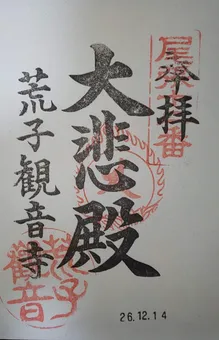 奉拝
大悲殿
荒子観音寺
荒子
観音
26.12.14